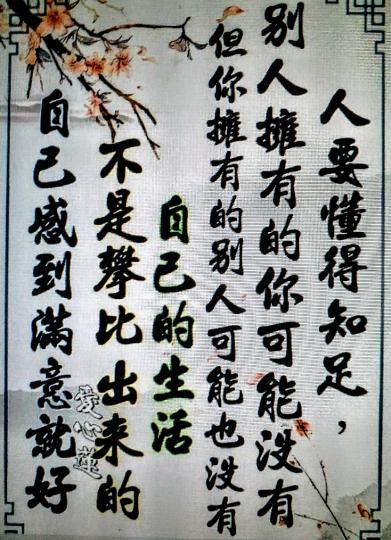 人要懂得知足，
別人擁有的你可能沒有
但你擁有的別人可能也沒有
自己的生活
不是攀比出来的
自己感到滿意就好
愛心蓮